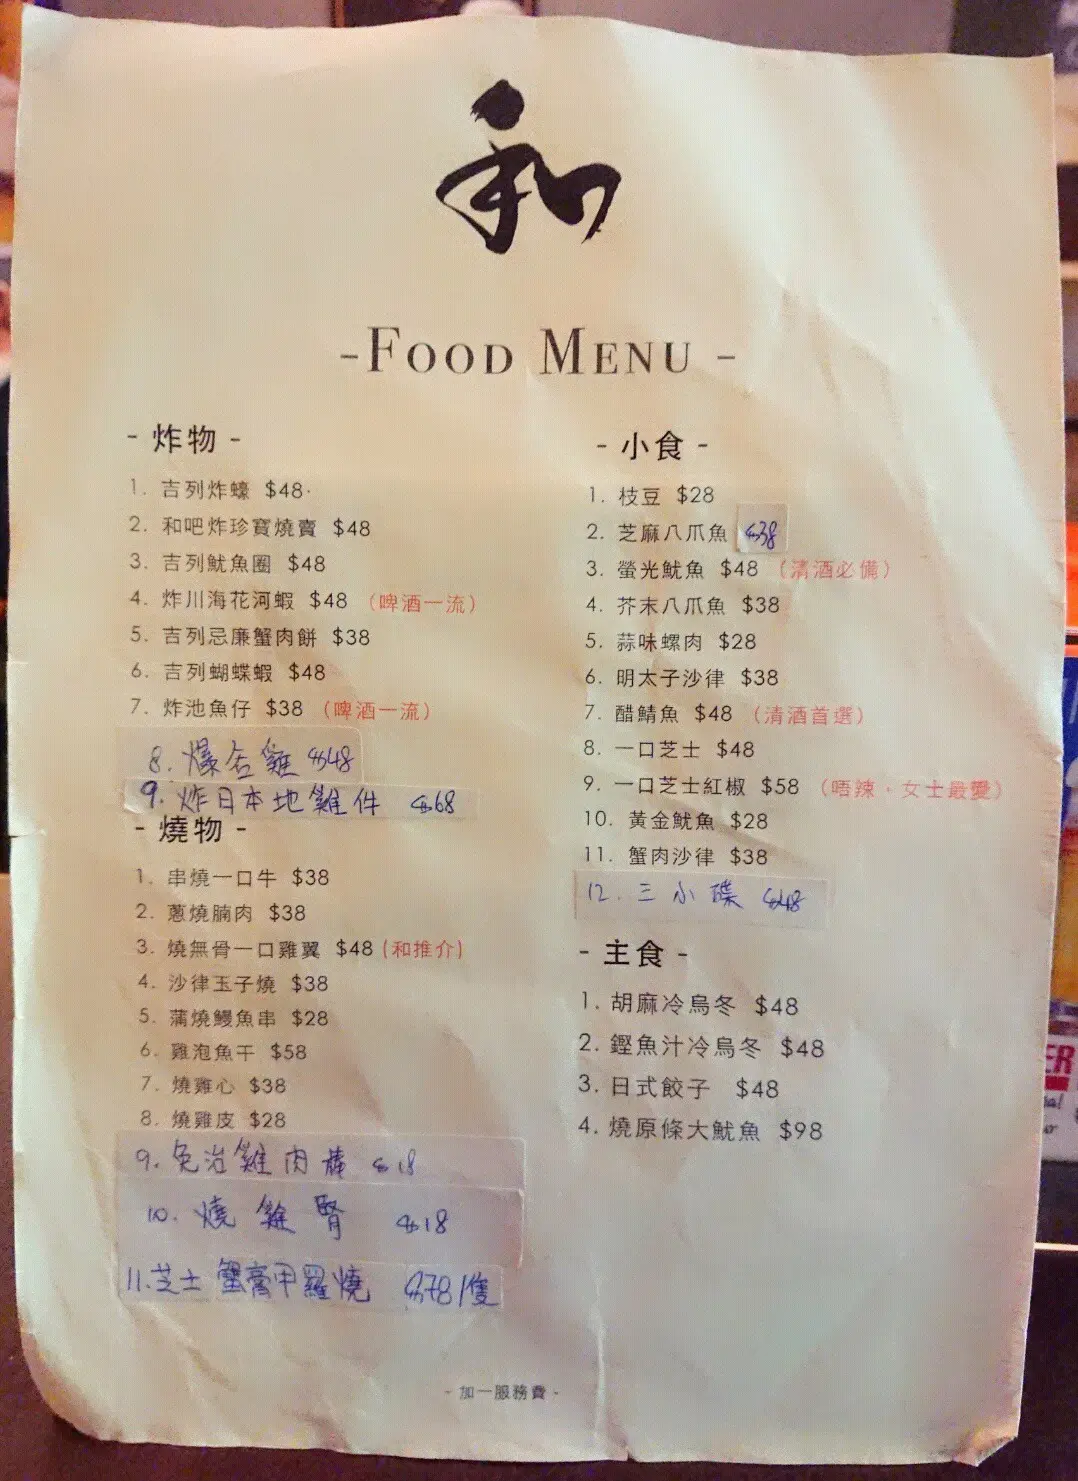 和
-FOOD MENU -
- 炸物 -
1. 吉列炸蠔 $48
2. 和吧炸珍寶燒賣 $48
3. 吉列魷魚圈 $48
4. 炸川海花河蝦 $48 (啤酒一流)
5. 吉列忌廉蟹肉餅 $38
6. 吉列蝴蝶蝦 $48
7. 炸池魚仔 $38 (啤酒一流)
8. 爆谷雞 $48
9. 炸日本地雞件 $68
- 燒物 -
1. 串燒一口牛 $38
2. 蔥燒腩肉 $38
3. 燒無骨一口雞翼 $48 (和推介)
4. 沙律玉子燒 $38
5. 蒲燒鰻魚串 $28
6. 雞泡魚干 $58
7. 燒雞心 $38
8. 燒雞皮 $28
9. 免治雞肉棒 $18
10. 燒雞腎 $18
11. 芝士蟹膏甲羅燒 $78/隻
- 小食 -
1. 枝豆 $28
2. 芝麻八爪魚 $38
3. 螢光魷魚 $48 (清酒必備)
4. 芥末八爪魚 $38
5. 蒜味螺肉 $28
6. 明太子沙律 $38
7. 醋鯖魚 $48 (清酒首選)
8. 一口芝士 $48
9. 一口芝士紅椒 $58 (唔辣・女士最愛)
10. 黃金魷魚 $28
11. 蟹肉沙律 $38
12. 三小碟 $48
- 主食 -
1. 胡麻冷烏冬 $48
2. 鰹魚汁冷烏冬 $48
3. 日式餃子 $48
4. 燒原條大魷魚 $98
- 加一服務費 -